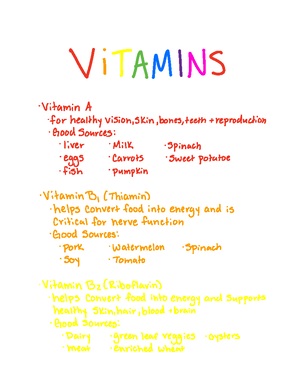 VITAMINS
·Vitamin A
·for healthy vision,skin,bones,teeth + reproduction
·Good Sources:
·liver ·Milk ·Spinach
·eggs ·Carrots ·Sweet potatoe
·fish ·pumpkin
·Vitamin B₁ (Thiamin)
·helps convert food into energy and is
critical for nerve function
·Good Sources:
·Pork ·Watermelon ·Spinach
·Soy ·Tomato
Vitamin B₂ (Riboflavin)
·helps convert food into energy and supports
healthy skin,hair,blood +brain
·Good Sources:
·Dairy ·green leaf veggies ·oysters
·meat ·enriched wheat